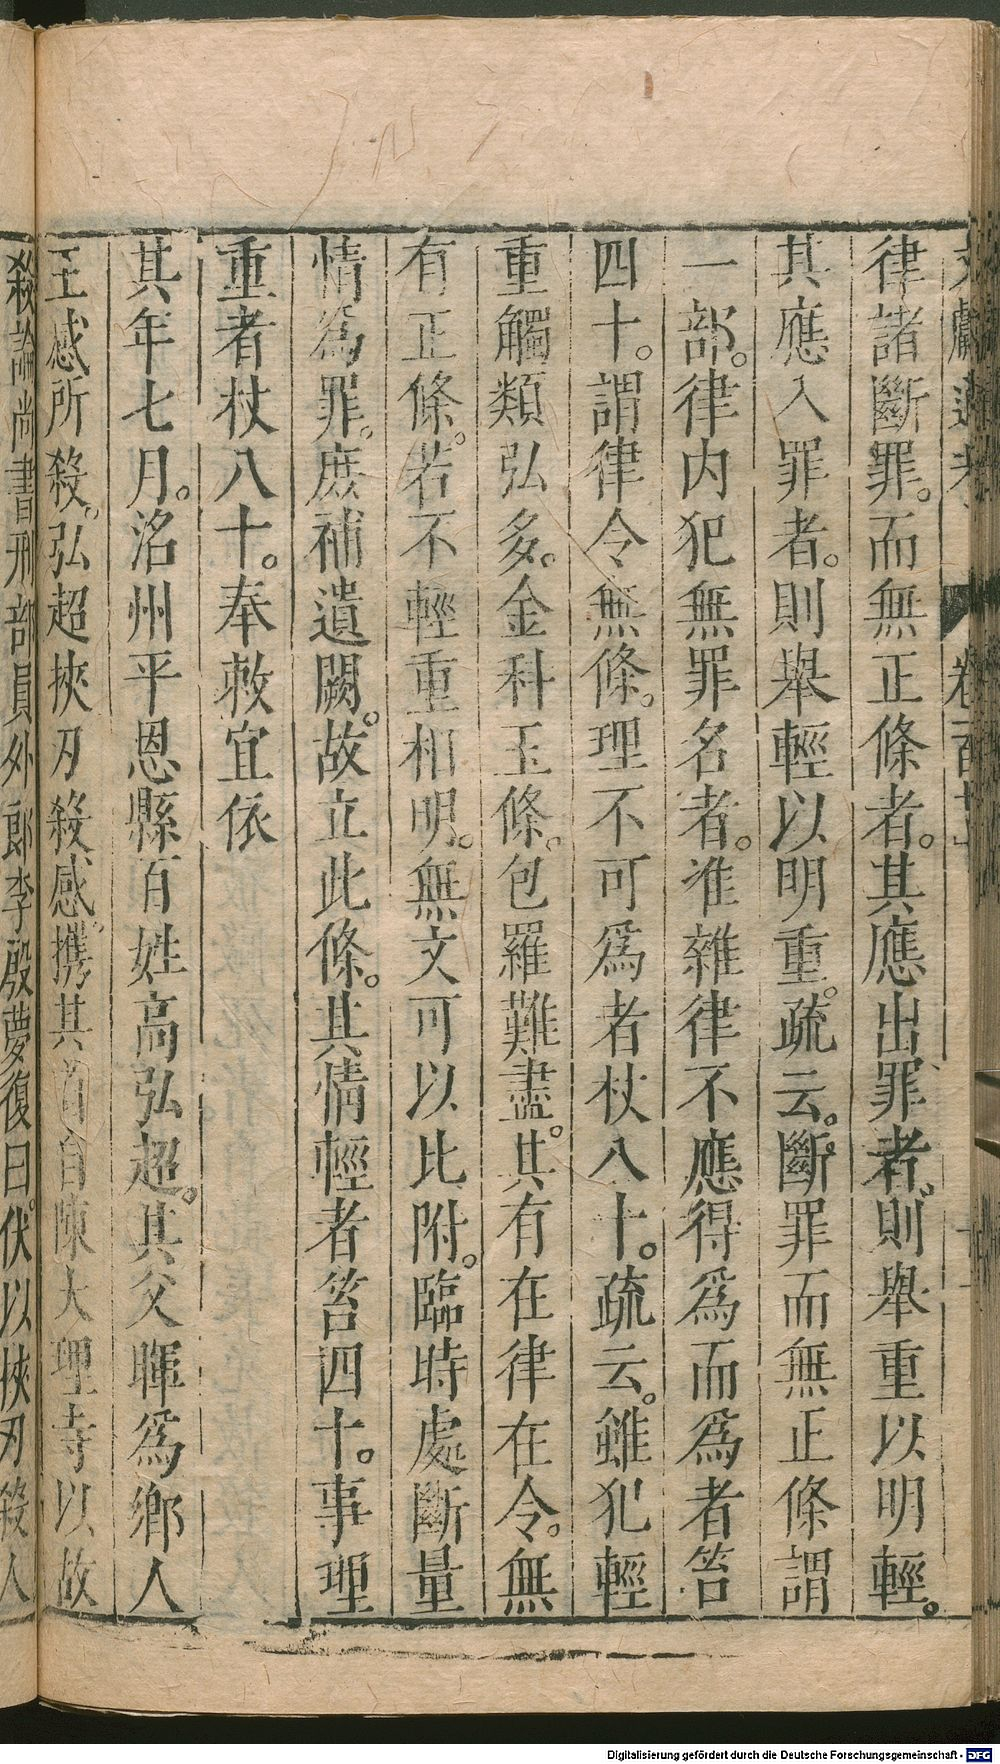 文獻通考 卷一百七十 十一
律諸斷罪。而無正條者。其應出罪者。則舉重以明輕。
其應入罪者。則舉輕以明重。疏云。斷罪而無正條謂
一部。律内犯無罪名者。准雜律不應得爲而爲者笞
四十。謂律令無條。理不可爲者杖八十。疏云。雖犯輕
重觸類弘多。金科玉條。包羅難盡。其有在律在令。無
有正條。若不輕重相明。無文可以比附。臨時處斷量
情爲罪。庶補遺闕。故立此條。其情輕者笞四十。事理
重者杖八十。奉敕宜依
其年七月。洺州平恩縣百姓高弘超。其父暉爲鄉人
王感所殺。弘超挾刃殺感。携其首自陳大理寺以故
殺論尚書刑部員外郎李殷夢復曰。伏以挾刃殺人
Digitalisierung gefördert durch die Deutsche Forschungsgemeinschaft - DFG